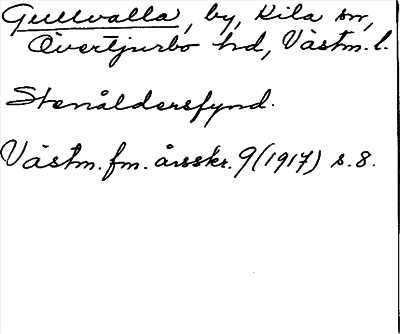 Gullvalla, by, Kila sn,
Övertjurbo hd, Västm. l.
Stenåldersfynd.
Västm. fm. årsskr. 9 (1917) s. 8.